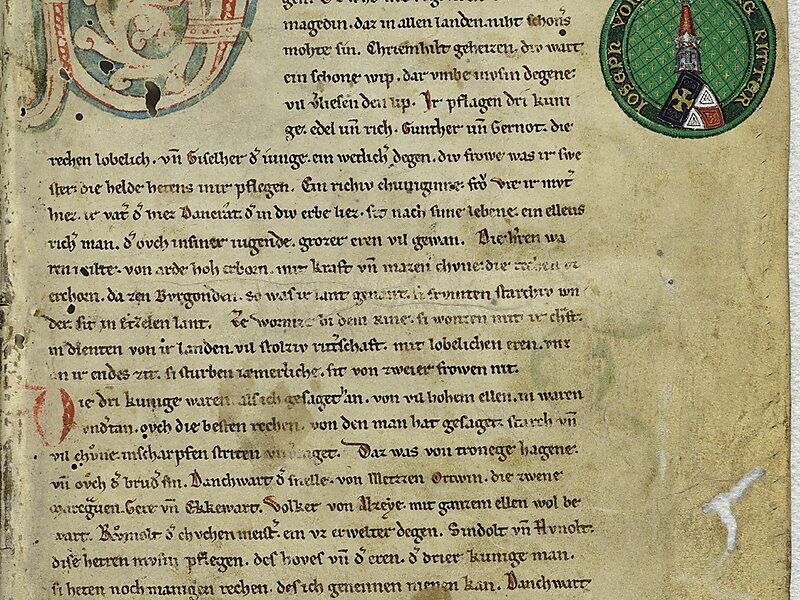 magedin. daz in allen landen niht schoͤnˢ
mohte sin. Chriemhilt geheizen. div wart
ein schone wip. dar vmbe mvsin degene
vil vˢliesen den lip. Ir pflagen dri kuni
ge. edel vn̄ rich. Gunther vn̄ Gernot. die
rechen lobelich. vn̄ Giselher dˢ iunge. ein wetlichˢ degen. div frowe was ir swe
ster. die helde hetens inir pflegen. Ein richiv chuniginne. froͮ Vͦte ir mvtˢ
hiez. ir vatˢ dˢ hiez Dancrat. dˢ in div erbe liez. sit nach sime lebene. ein ellens
richˢ man. dˢ ovch insiner iugende. grozer eren vil gewan. Die hˢren wa
ren milte. von arde hoh erborn. mit kraft vn̄ mazen chvne. die rechen
erchorn. da zen Bvrgonden. so was ir lant genant. si frvmten starchiv wn
der. sit in Etzelen lant. Ze wormze bi dem Rine. si wonten mit ir chft.
in dienten von ir landen. vil stolziv ritˢschaft. mit lobelichen eren. vnz
an ir endes zit. si sturben iæmerliche. sit von zweier frowen nit.
Die dri kunige waren. als ich gesaget han. von vil hohem ellen. in waren
vndˢtan. ovch die besten rechen. von den man hat gesaget. starch vn̄
vil chvͤne. inscharpfen striten vnverzaget. Daz was von tronege hagene.
vn̄ ovͦch dˢ brvdˢ sin. Danchwart dˢ snelle. von Metzzen Ortwin. die zwene
marcgͣuen. Gere vn̄ Ekkewart. Volker von Alzeye. mit ganzem ellen wol be
wart. Rvͦmolt dˢ chvchen meistˢ. ein vz erwelter degen. Sindolt vn̄ Hvnolt.
dise herren mvsin pflegen. des hoves vn̄ dˢ eren. dˢ drier kunige man.
si heten noch manigen rechen. des ich genennen nienen kan. Danchwart
IOSEPH VON
RITTER